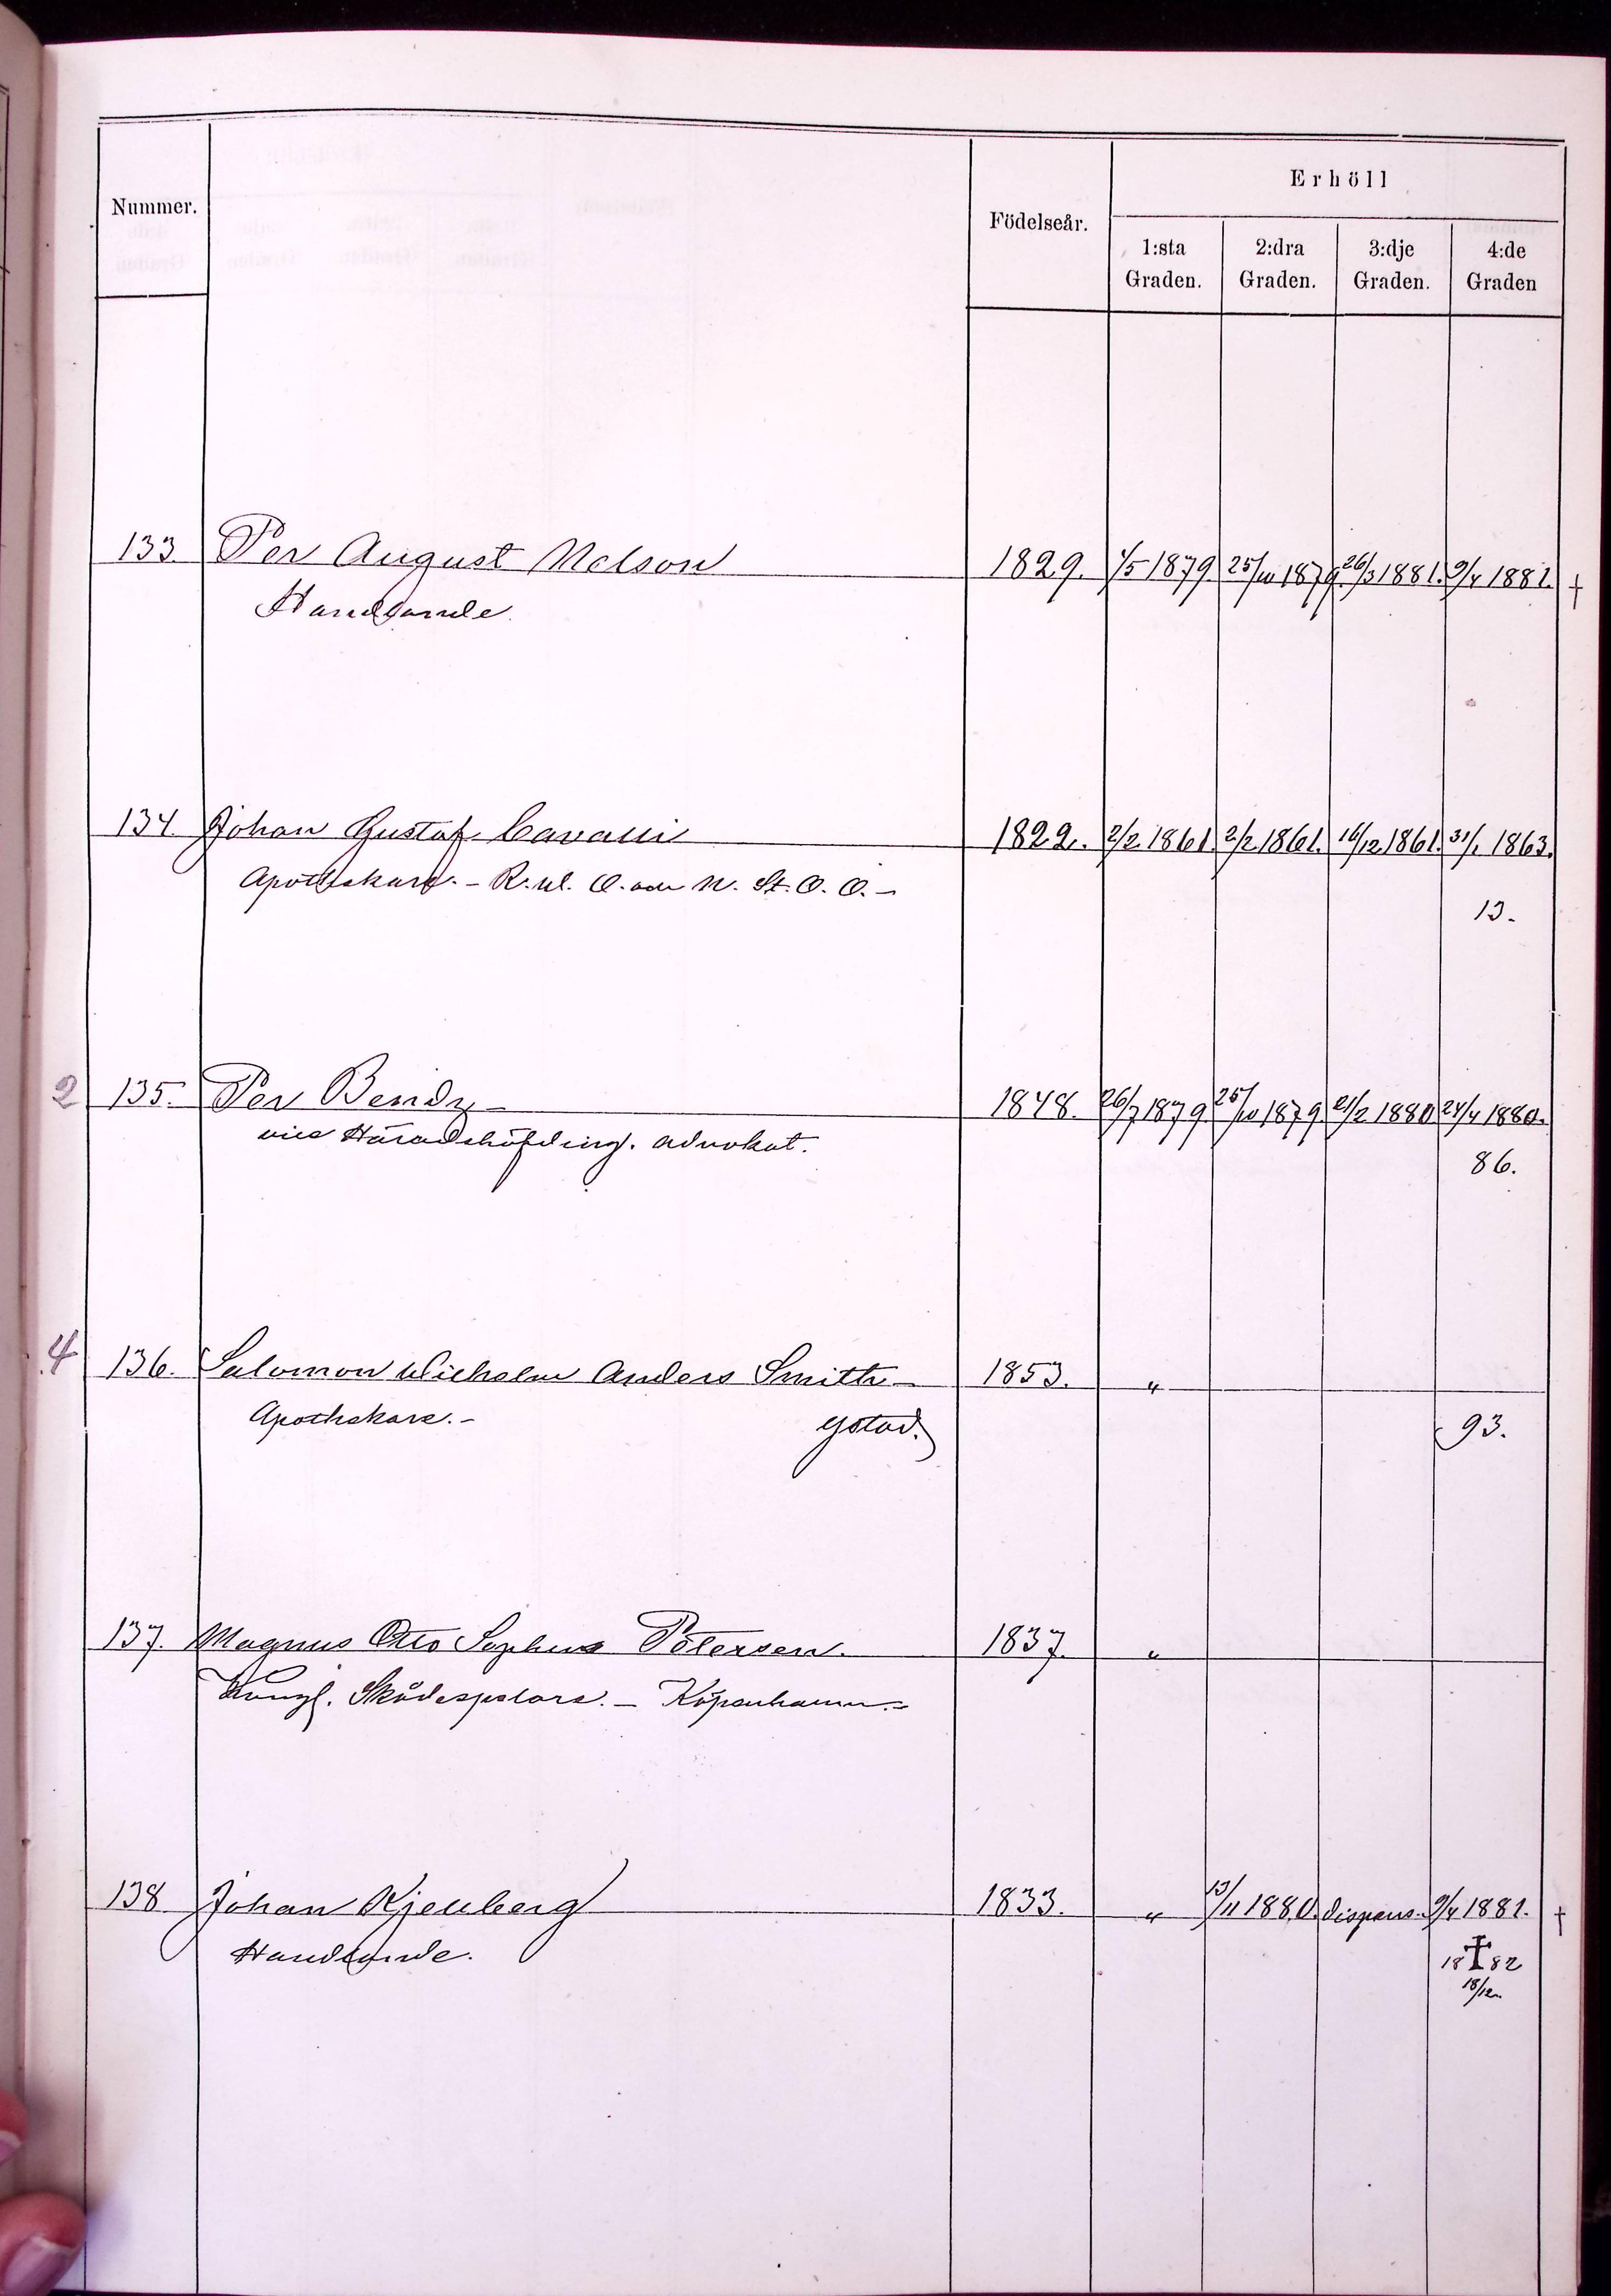 Nummer.
Födelseår.
Erhöll
1:sta Graden.
2:dra Graden.
3:dje Graden.
4:de Graden
133. Per August Nelson 1829. 1/5 1879. 25/10 1879. 26/3 1881. 9/4 1881. †
Handlande.
134. Johan Gustaf Cavalli 1822. 2/2 1861. 2/2 1861. 16/12 1861. 31/1 1863.
Apothekare. - R. W. O. och N. St. O. O. -
13.
2 135. Per Bendz 1848. 26/7 1879. 25/10 1879. 21/2 1880. 24/4 1880.
vice Häradshöfding. Advokat.
86.
4 136. Salomon Wilhelm Anders Smith 1853. "
Apothekare. - Ystad.
93.
137. Magnus Otto Sophus Petersen. 1837. "
Kungl. Skådespelare. - Köpenhamn. -
138. Johan Kjellberg 1833. " 13/11 1880. dispens. 9/4 1881. †
Handlande.
18 † 82
18/12